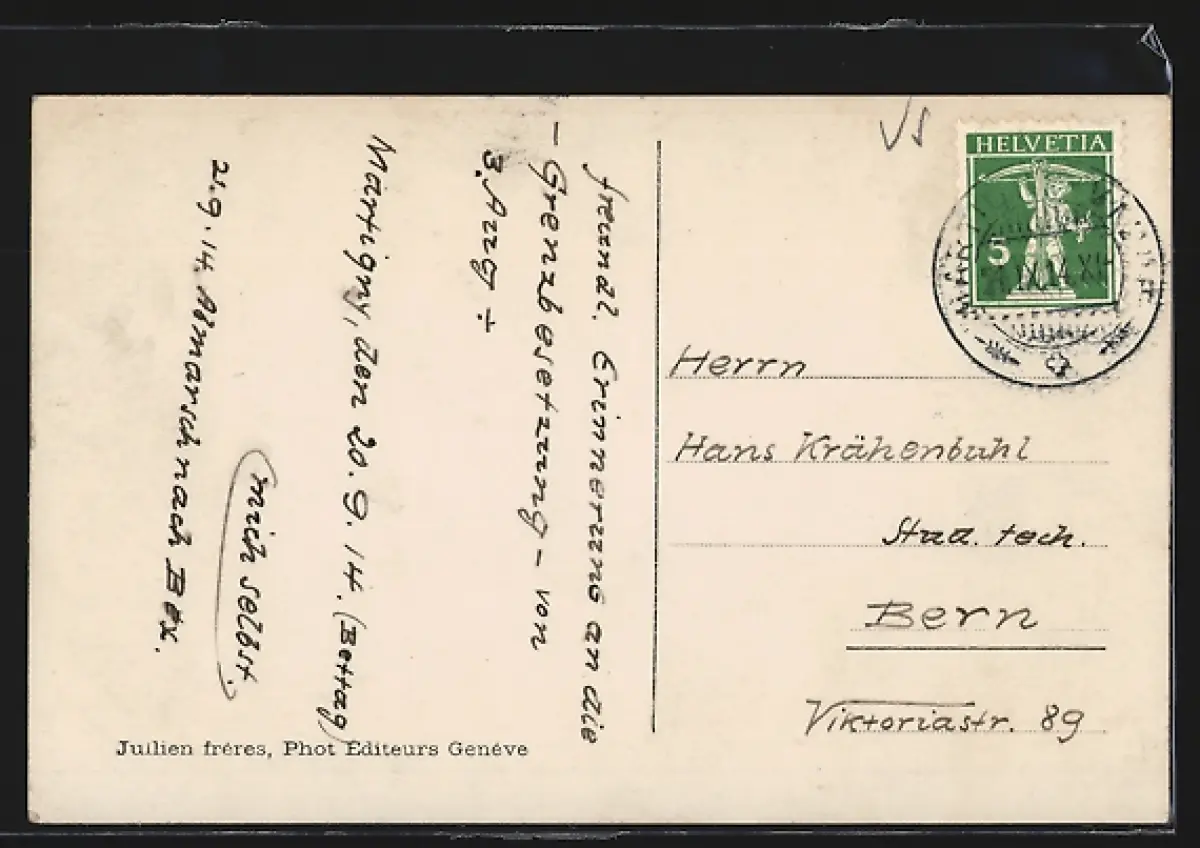 freundl. Erinnerung an die
– Grenzbesetzung – von
3. Aug ÷
Martigny, den 20.9.14. (Bettag)
mich selbst.
21.9.14. Abmarsch nach Bex.
Jullien fréres, Phot Editeurs Genéve
VS
HELVETIA
5
21.IX.14.XI
Herrn
Hans Krähenbuhl
Stud. tech.
Bern
Viktoriastr. 89